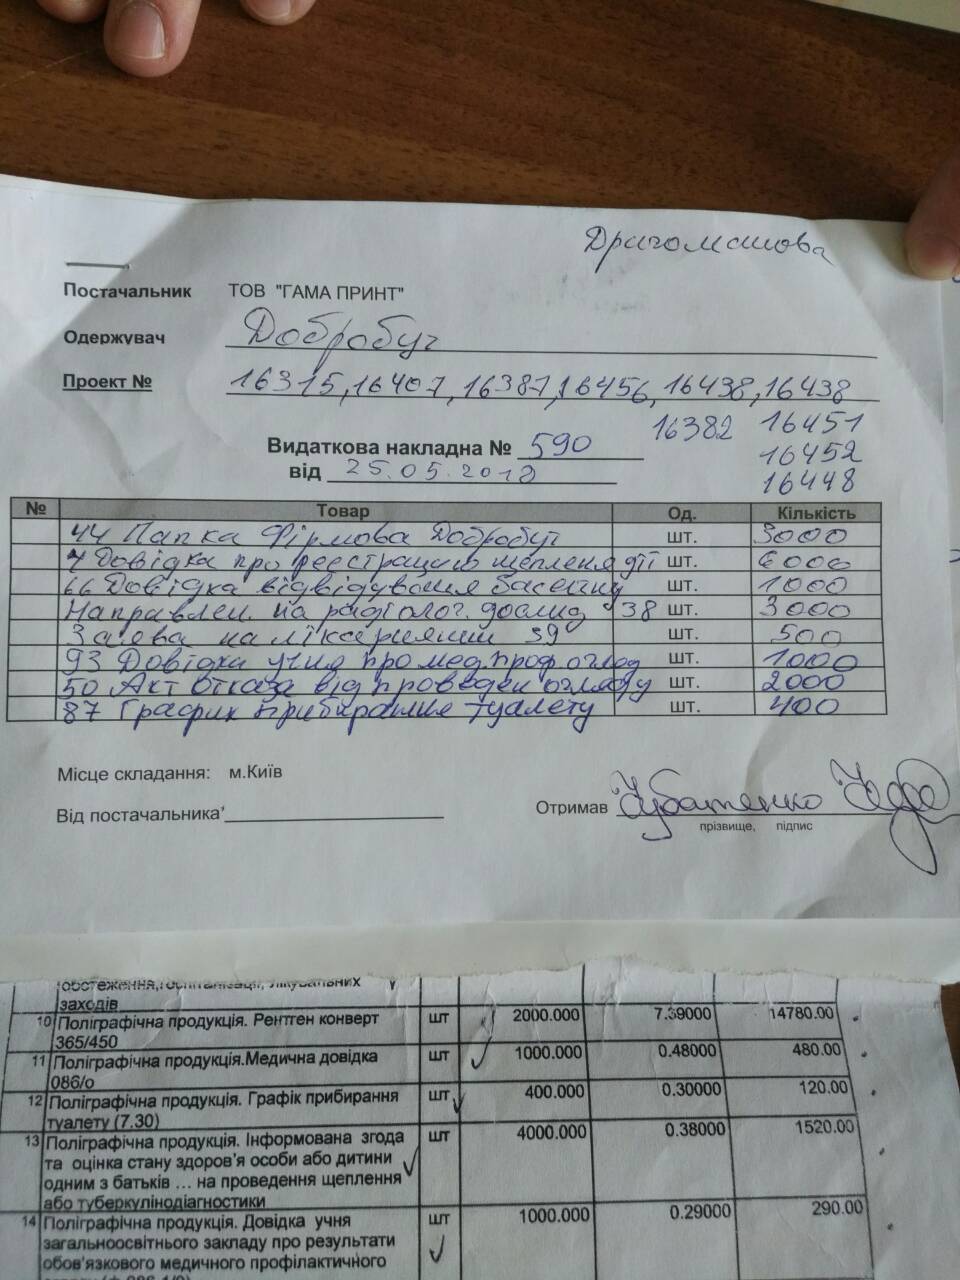 Драгоманова
Постачальник ТОВ "ГАМА ПРИНТ"
Одержувач Добробут
Проект № 16315, 16407, 16387, 16456, 16438, 16438
16382 16451
16452
16448
Видаткова накладна № 590
від 25.05.2018
№ Товар Од. Кількість
44 Папка Фірмова Добробут шт. 3000
7 Довідка про реєстрацію щеплень дії шт. 6000
66 Довідка відвідування басейну шт. 1000
Направлен. на радіолог. дослид 38 шт. 3000
Заява на лікарняний 39 шт. 500
93 Довідка учня про мед. проф. огляд шт. 1000
50 Акт отказа від проведен огляду шт. 2000
87 Графік прибирання туалету шт. 400
Місце складання: м.Київ
Від постачальника Отримав Чубатенко
прізвище, підпис
обстеження, госпіталізації, лікувальних
заходів
10 Поліграфічна продукція. Рентген конверт шт 2000.000 7.39000 14780.00
365/450
11 Поліграфічна продукція.Медична довідка шт 1000.000 0.48000 480.00
086/о
12 Поліграфічна продукція. Графік прибирання шт 400.000 0.30000 120.00
туалету (7.30)
13 Поліграфічна продукція. Інформована згода шт 4000.000 0.38000 1520.00
та оцінка стану здоров'я особи або дитини
одним з батьків ... на проведення щеплення
або туберкулінодіагностики
14 Поліграфічна продукція. Довідка учня шт 1000.000 0.29000 290.00
загальноосвітнього закладу про результати
обов'язкового медичного профілактичного